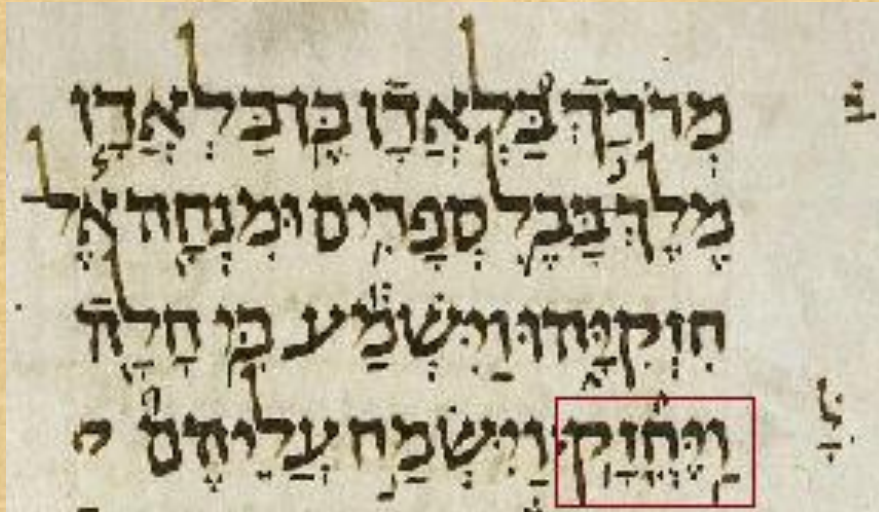 מְרֹדַךְ בַּלְאֲדָן בֶּן בַּלְאֲדָן ב
מֶלֶךְ־בָּבֶל סְפָרִים וּמִנְחָה אֶל
חִזְקִיָּהוּ וַיִּשְׁמַע כִּי חָלָה
וַיֶּחֱזָק׃ וַיִּשְׂמַח עֲלֵיהֶם ל